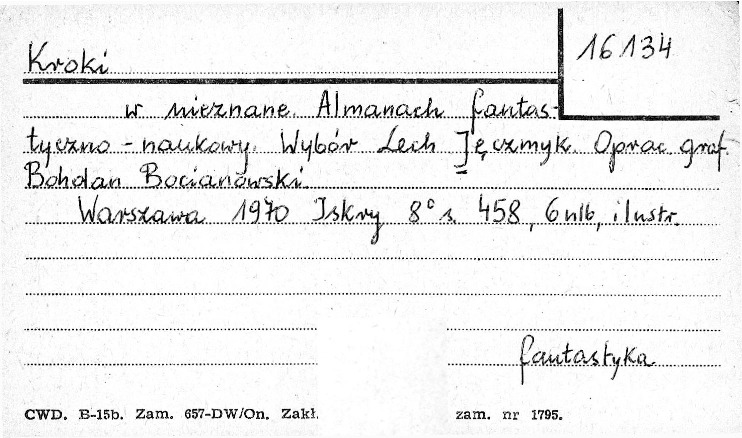 Kroki
16134
w nieznane. Almanach fantas-
tyczno-naukowy. Wybór Lech Jęczmyk. Oprac graf.
Bohdan Bocianowski.
Warszawa 1970 Iskry 8° s. 458, 6 nlb, ilustr.
fantastyka
CWD. B-15b. Zam. 657-DW/On. Zakł. zam. nr 1795.